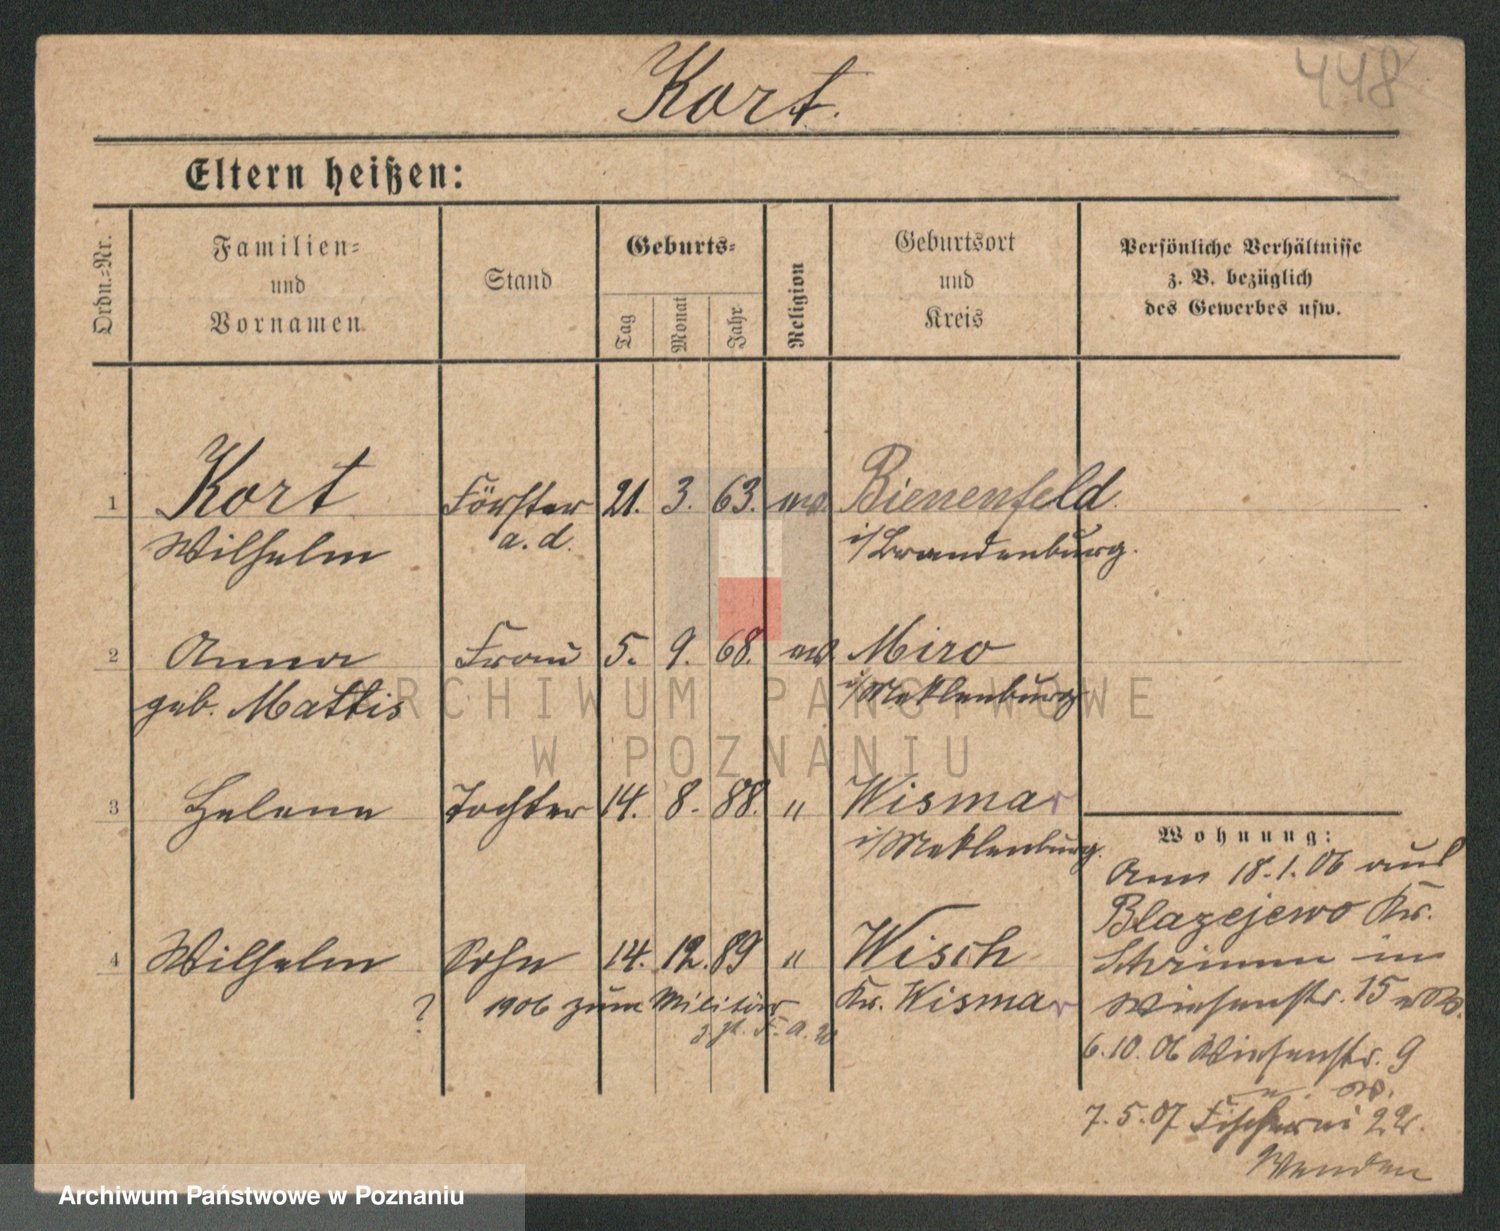 448
Kort.
Eltern heißen:
Ordn.-Nr.
Familien-
und
Vornamen
Stand
Geburts-
Tag
Monat
Jahr
Religion
Geburtsort
und
Kreis
Persönliche Verhältnisse
z. B. bezüglich
des Gewerbes usw.
1 Kort Förster 21. 3. 63. Bienenfeld
Wilhelm a. d. i/Brandenburg.
2 Anna Frau 5. 9. 68. Miro
geb. Mattis i/Meklenburg
3 Helene Tochter 14. 8. 88. " Wismar
i/Meklenburg.
4 Wilhelm Sohn 14. 12. 89 " Wisch
? 1906 zum Militär Kr. Wismar
Wohnung:
18.1.06 aus
Blazejewo Kr.
Schrimm in
Wiesenstr. 15
6.10.06 Wiesenstr. 9
7.5.07 Fischerei 22.
Wenden
ARCHIWUM PAŃSTWOWE
W POZNANIU
Archiwum Państwowe w Poznaniu